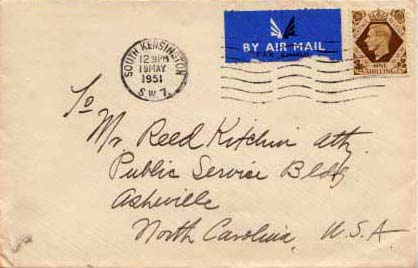 SOUTH KENSINGTON
12 PM
19 MAY
1951
S.W.7.
BY AIR MAIL
PAR AVION
ONE SHILLING
To
Mr Reed Kitchin atty.
Public Service Bldg
Asheville
North Carolina, U.S.A